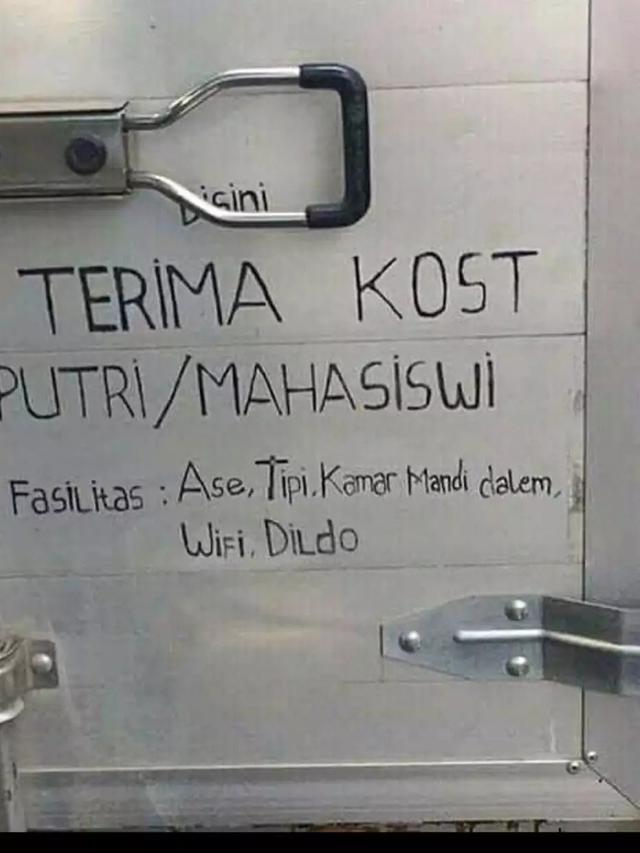 Disini
TERIMA KOST
PUTRI/MAHASISWI
Fasilitas : Ase, Tipi, Kamar Mandi dalem,
Wifi, Dildo